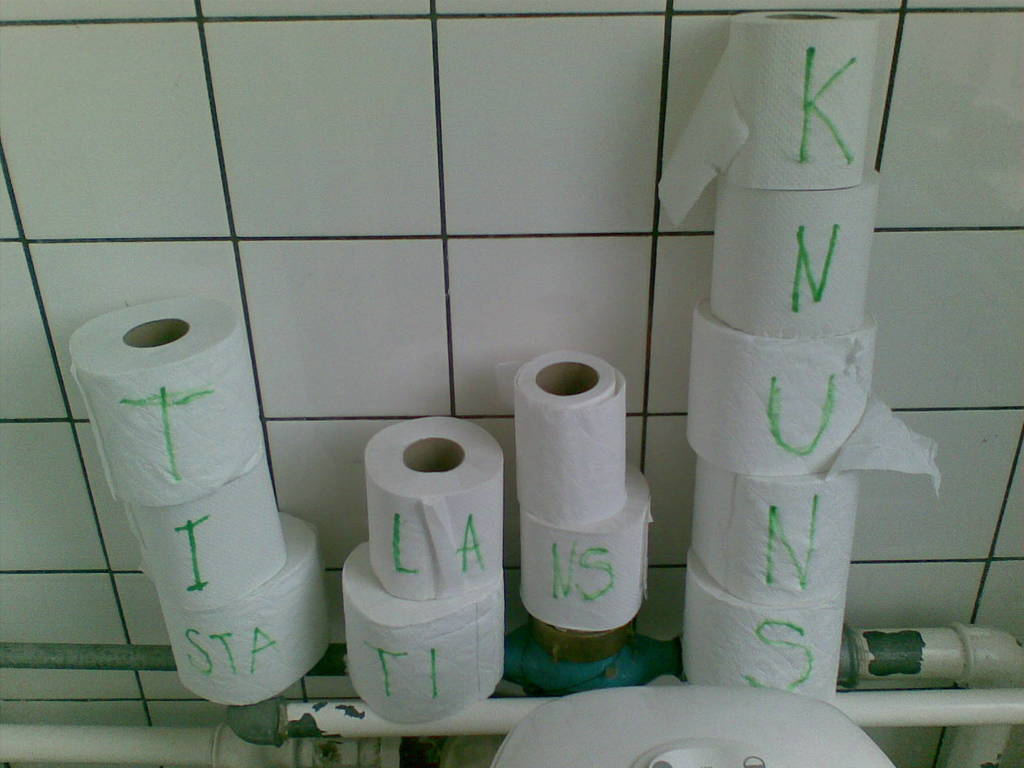 T
I
STA
LA
TI
NS
K
N
U
N
S